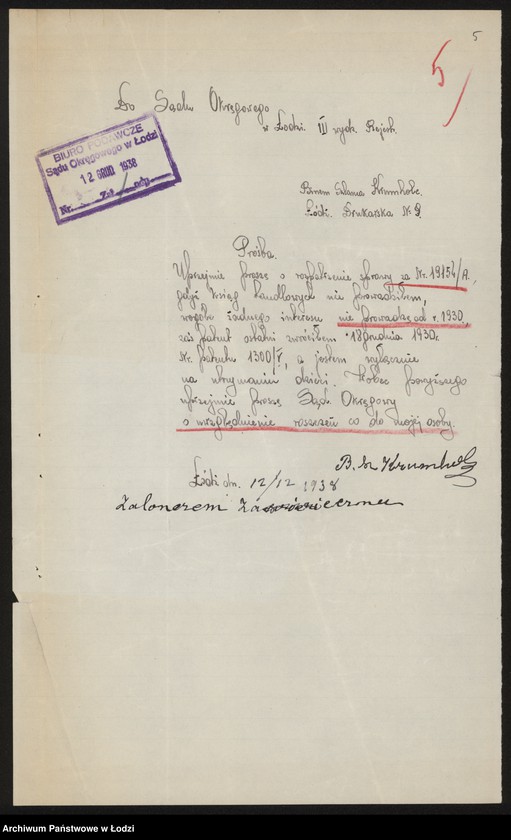 5
5
Do Sądu Okręgowego
w Łodzi. III wydz. Rejestr.
BIURO PODAWCZE
Sądu Okręgowego w Łodzi
12 GRUD 1938
Nr. Zał.
Krumholc.
Łódź. Drukarska № 9.
Prośba.
Uprzejmie proszę o rozpatrzenie sprawy za Nr. 19154/A.,
gdyż ksiąg handlowych nie prowadziłem,
wogóle żadnego interesu nie prowadzę od r. 1930,
zaś patent ostatni zwróciłem 18 grudnia 1930r.
Nr. patentu 1300/V, a jestem wyłącznie
na utrzymaniu dzieci. Wobec powyższego
uprzejmie proszę Sąd Okręgowy
o uwzględnienie roszczeń co do mojej osoby.
B. Sz Krumholz
Łódź dn. 12/12 1938